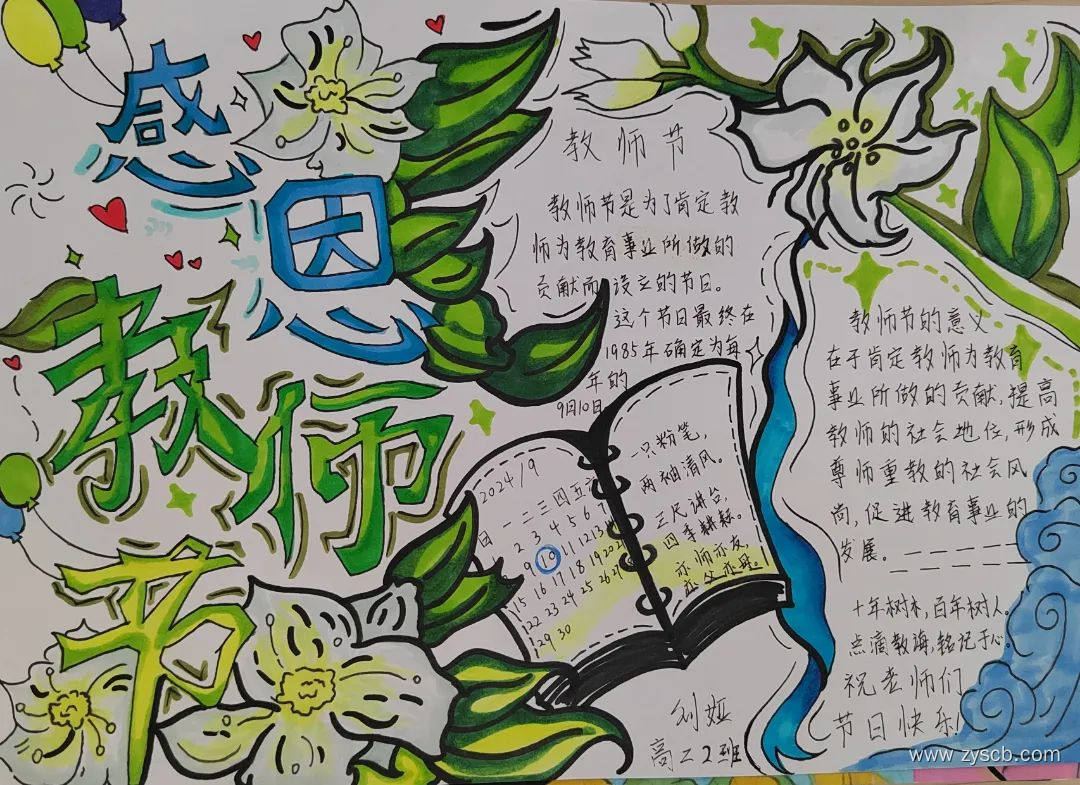 感
恩
教
师
节
教师节
教师节是为了肯定教
师为教育事业所做的
贡献而设立的节日。
这个节日最终在
1985年确定为每
年的
9月10日
2024/9
一二三四五六
日
2 3 4 5 6 7
9 10 11 12 13
15 16 17 18 19 20 21
22 23 24 25 26 27
29 30
一只粉笔,
两袖清风。
三尺讲台,
四季耕耘。
亦师亦友,
亦父亦母。
教师节的意义
在于肯定教师为教育
事业所做的贡献,提高
教师的社会地位,形成
尊师重教的社会风
尚,促进教育事业的
发展。
十年树木,百年树人。
点滴教诲,铭记于心。
祝老师们
节日快乐!
刘娅
高二2班
www.zyscb.com